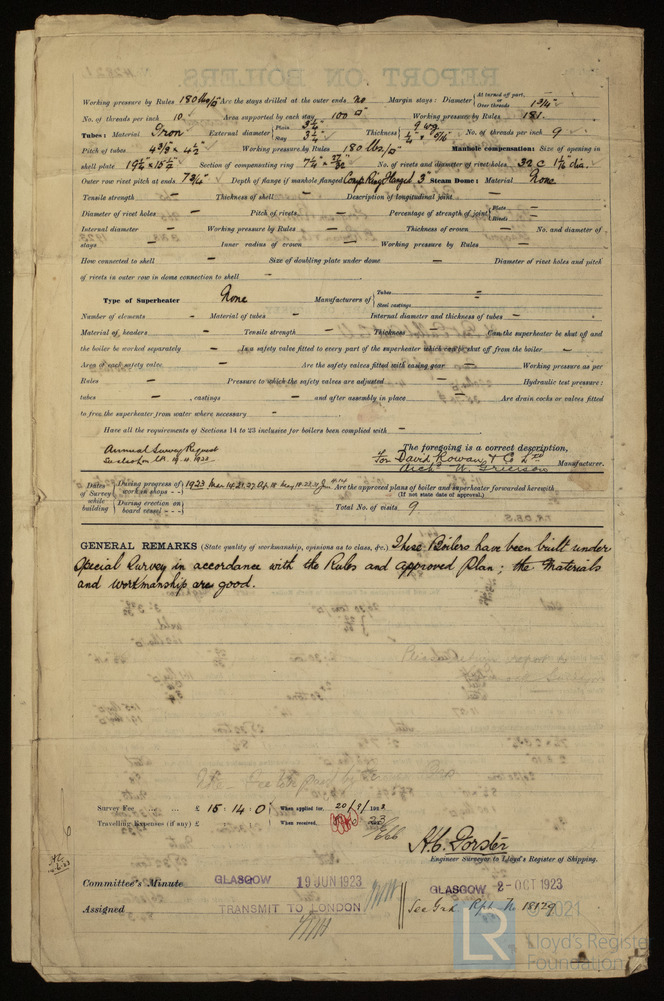 REPORT ON BOILERS.
Working pressure by Rules 180 lbs/□" Are the stays drilled at the outer ends No Margin stays: Diameter { At turned off part, or Over threads 1¾"
No. of threads per inch 10 Area supported by each stay 100 □" Working pressure by Rules 181.
Tubes: Material Iron External diameter { Plain 3¼" Stay 3¼" Thickness { 9 wg ¼" & 5/16" No. of threads per inch 9
Pitch of tubes 4⅜" × 4½" Working pressure by Rules 180 lbs/□" Manhole compensation: Size of opening in
shell plate 19½" × 15½" Section of compensating ring No. of rivets and diameter of rivet holes 32 @ 1¼" dia.
Outer row rivet pitch at ends 7¾" Depth of flange if manhole flanged Comp Ring Flanged 3" Steam Dome: Material None
Tensile strength — Thickness of shell — Description of longitudinal joint —
Diameter of rivet holes — Pitch of rivets — Percentage of strength of joint { Plate — Rivets —
Internal diameter — Working pressure by Rules — Thickness of crown — No. and diameter of
stays — Inner radius of crown — Working pressure by Rules —
How connected to shell — Size of doubling plate under dome — Diameter of rivet holes and pitch
of rivets in outer row in dome connection to shell —
Type of Superheater None Manufacturers of { Tubes — Steel castings —
Number of elements — Material of tubes — Internal diameter and thickness of tubes —
Material of headers — Tensile strength — Thickness — Can the superheater be shut off and
the boiler be worked separately — Is a safety valve fitted to every part of the superheater which can be shut off from the boiler —
Area of each safety valve — Are the safety valves fitted with easing gear — Working pressure as per
Rules — Pressure to which the safety valves are adjusted — Hydraulic test pressure:
tubes — , castings — and after assembly in place — Are drain cocks or valves fitted
to free the superheater from water where necessary —
Have all the requirements of Sections 14 to 22 inclusive for boilers been complied with —
Annual Survey Request
The foregoing is a correct description,
For David Rowan & Co Ltd
Archd W. Grierson Manufacturer.
Dates of Survey while building { During progress of work in shops - - 1923 Mar. 14. 21. 27. Ap. 18 May Are the approved plans of boiler and superheater forwarded herewith
(If not state date of approval.)
During erection on board vessel - - - Total No. of visits 9.
GENERAL REMARKS (State quality of workmanship, opinions as to class, &c.) These Boilers have been built under
Special Survey in accordance with the Rules and approved plan; the Materials
and workmanship are good.
Survey Fee ... ... ... £ 15 : 14 : 0 When applied for, 20/9/1923
Travelling Expenses (if any) £ When received,
A.C. Forster
Engineer Surveyor to Lloyd's Register of Shipping.
Committee's Minute GLASGOW 19 JUN 1923 GLASGOW 2-OCT 1923
Assigned TRANSMIT TO LONDON See Gls. Rpt. No 18129
© 2021
LR
Lloyd's Register
Foundation